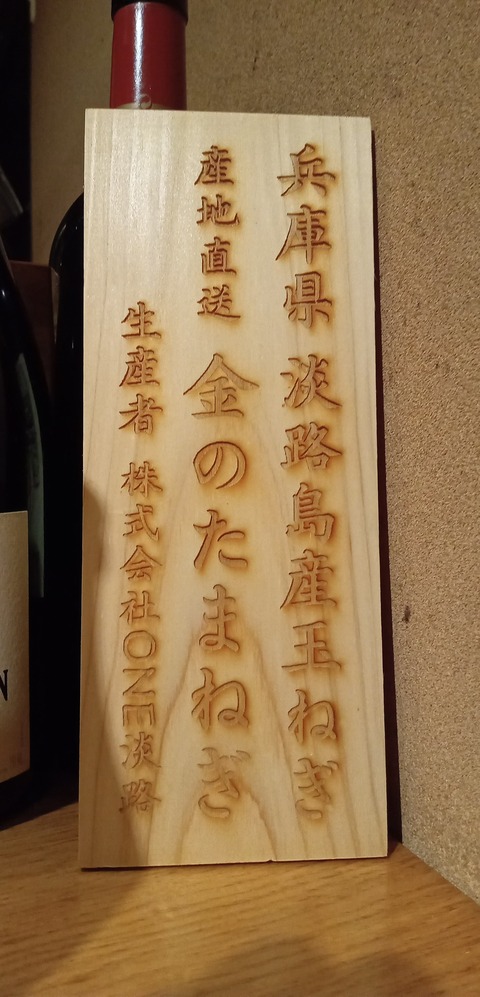 兵庫県 淡路島産玉ねぎ
産地直送 金のたまねぎ
生産者 株式会社ONE淡路
N